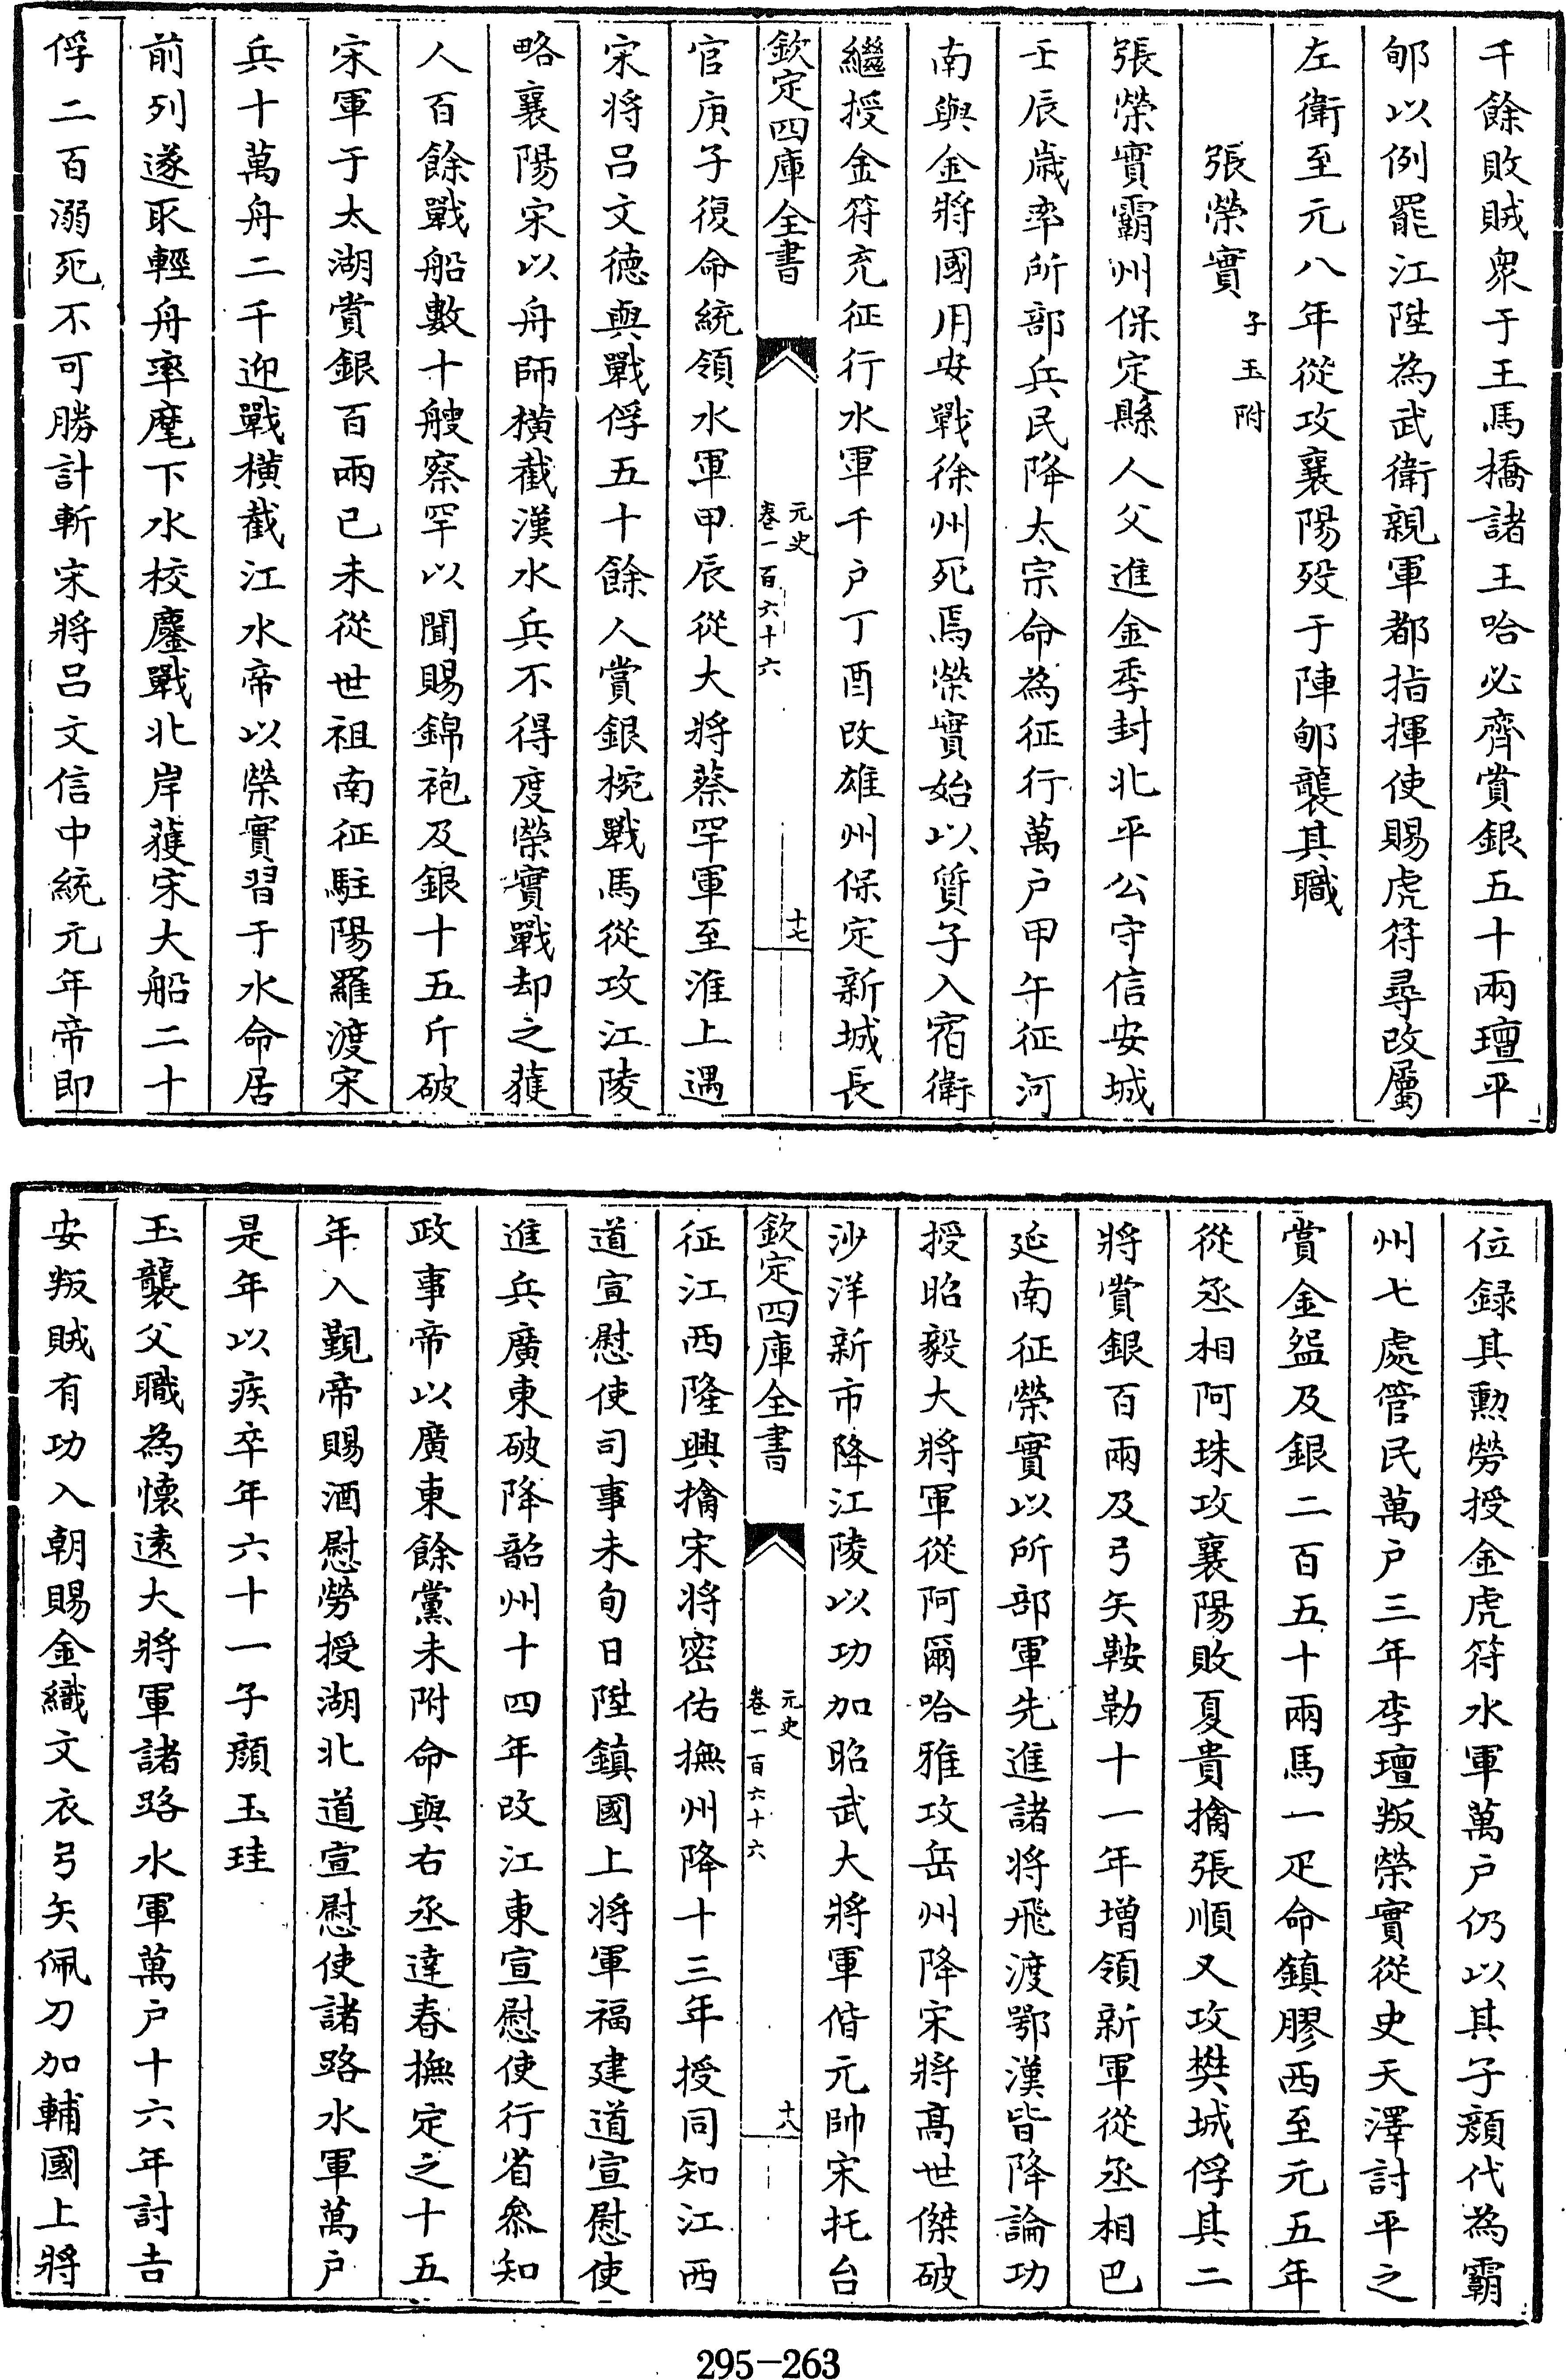 千餘敗賊衆于王馬橋諸王哈必齊賞銀五十兩璮平
郇以例罷江陞為武衛親軍都指揮使賜虎符尋改屬
左衛至元八年從攻襄陽殁于陣郇襲其職
張榮實子玉附
張榮實霸州保定縣人父進金季封北平公守信安城
壬辰歳率所部兵民降太宗命為征行萬户甲午征河
南與金將國用安戰徐州死焉榮實始以質子入宿衛
繼授金符充征行水軍千户丁酉改雄州保定新城長
欽定四庫全書
元史
卷一百六十六
十七
官庚子復命統領水軍甲辰從大將蔡罕軍至淮上遇
宋將吕文德與戰俘五十餘人賞銀椀戰馬從攻江陵
略襄陽宋以舟師横截漢水兵不得度榮實戰却之獲
人百餘戰船數十艘察罕以聞賜錦袍及銀十五斤破
宋軍于太湖賞銀百兩已未從世祖南征駐陽羅渡宋
兵十萬舟二千迎戰横截江水帝以榮實習于水命居
前列遂取輕舟率麾下水校鏖戰北岸獲宋大船二十
俘二百溺死不可勝計斬宋將吕文信中統元年帝即
位録其勲勞授金虎符水軍萬户仍以其子顔代為霸
州七處管民萬户三年李璮叛榮實從史天澤討平之
賞金盌及銀二百五十兩馬一疋命鎮膠西至元五年
從丞相阿珠攻襄陽敗夏貴擒張順又攻樊城俘其二
將賞銀百兩及弓矢鞍勒十一年增領新軍從丞相巴
延南征榮實以所部軍先進諸將飛渡鄂漢皆降論功
授昭毅大將軍從阿爾哈雅攻岳州降宋將髙世傑破
沙洋新市降江陵以功加昭武大將軍偕元帥宋托台
欽定四庫全書
元史
卷一百六十六
十八
征江西隆興擒宋將密佑撫州降十三年授同知江西
道宣慰使司事未旬日陞鎮國上將軍福建道宣慰使
進兵廣東破降韶州十四年改江東宣慰使行省叅知
政事帝以廣東餘黨未附命與右丞達春撫定之十五
年入覲帝賜酒慰勞授湖北道宣慰使諸路水軍萬户
是年以疾卒年六十一子顔玉珪
玉襲父職為懷遠大將軍諸路水軍萬户十六年討吉
安叛賊有功入朝賜金織文衣弓矢佩刀加輔國上將
295-263